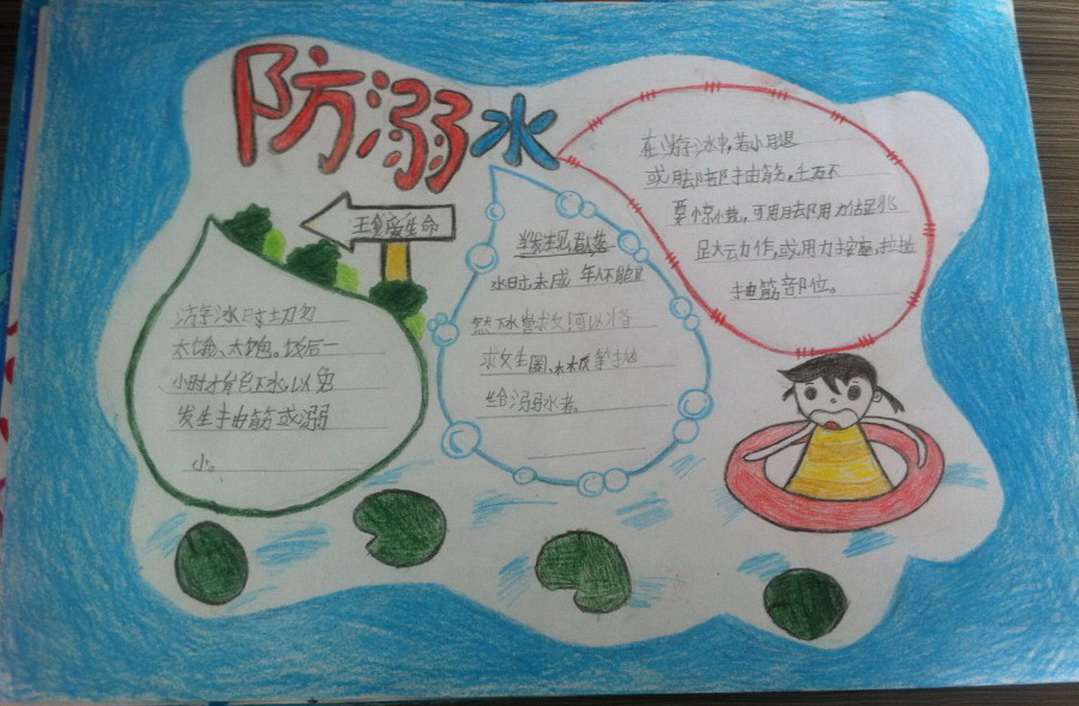 防溺水
珍爱生命
游泳时切勿
太饿、太饱。饭后一
小时才能下水,以免
发生抽筋或溺
水。
当发生见有人落
水时,未成年人不能冒
然下水营求文!可以将
求文生圈、木板等抛
给溺水者。
在游泳中,若小腿
或脚部抽筋,千万不
要惊慌,可用脚用力估蹬
足大云力作,或用力按摩、拉扯
抽筋部位。